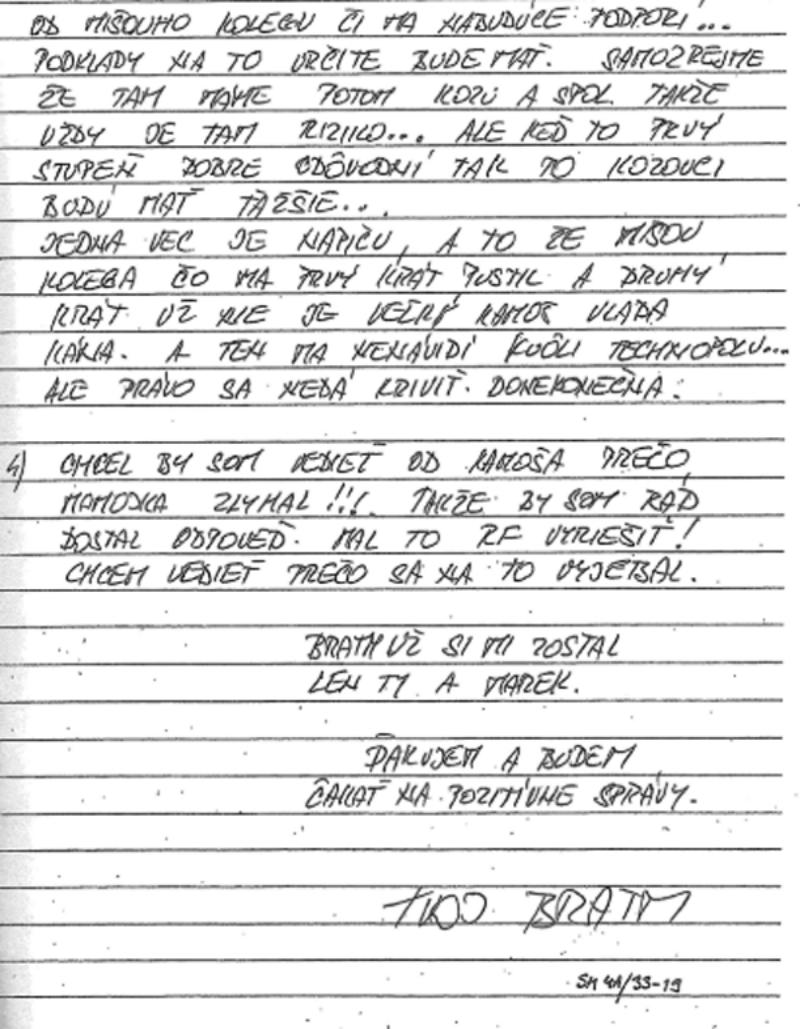 OD MIŠOVHO KOLEGU ČI MA NABUDÚCE PODPORÍ...
PODKLADY NA TO URČITE BUDE MAŤ. SAMOZREJME
ŽE TAM MÁME POTOM KOZU A SPOL. TAKŽE
VŽDY JE TAM RIZIKO... ALE KEĎ TO PRVÝ
STUPEŇ DOBRE ODÔVODNÍ TAK TO KOZOVCI
BUDÚ MAŤ ŤAŽŠIE...
JEDNA VEC JE NAPIČU, A TO ŽE MIŠOV
KOLEGA ČO MA PRVÝ KRÁT PUSTIL A DRUHÝ
KRÁT UŽ NIE JE VEĽKÝ KAMOŠ VLADA
KÁNA. A TEN MA NENÁVIDÍ KVÔLI TECHNOPOLU...
ALE PRÁVO SA NEDÁ KRIVIŤ DONEKONEČNA.
4) CHCEL BY SOM VEDIEŤ OD KAMOŠA PREČO
MAMOJKA ZLYHAL!!! TAKŽE BY SOM RÁD
DOSTAL ODPOVEĎ. MAL TO RF VYRIEŠIŤ!
CHCEM VEDIEŤ PREČO SA NA TO VYJEBAL.
BRATM UŽ SI MI ZOSTAL
LEN TY A MAREK.
ĎAKUJEM A BUDEM
ČAKAŤ NA POZITÍVNE SPRÁVY.
TVOJ BRATM
SM 41/33-19